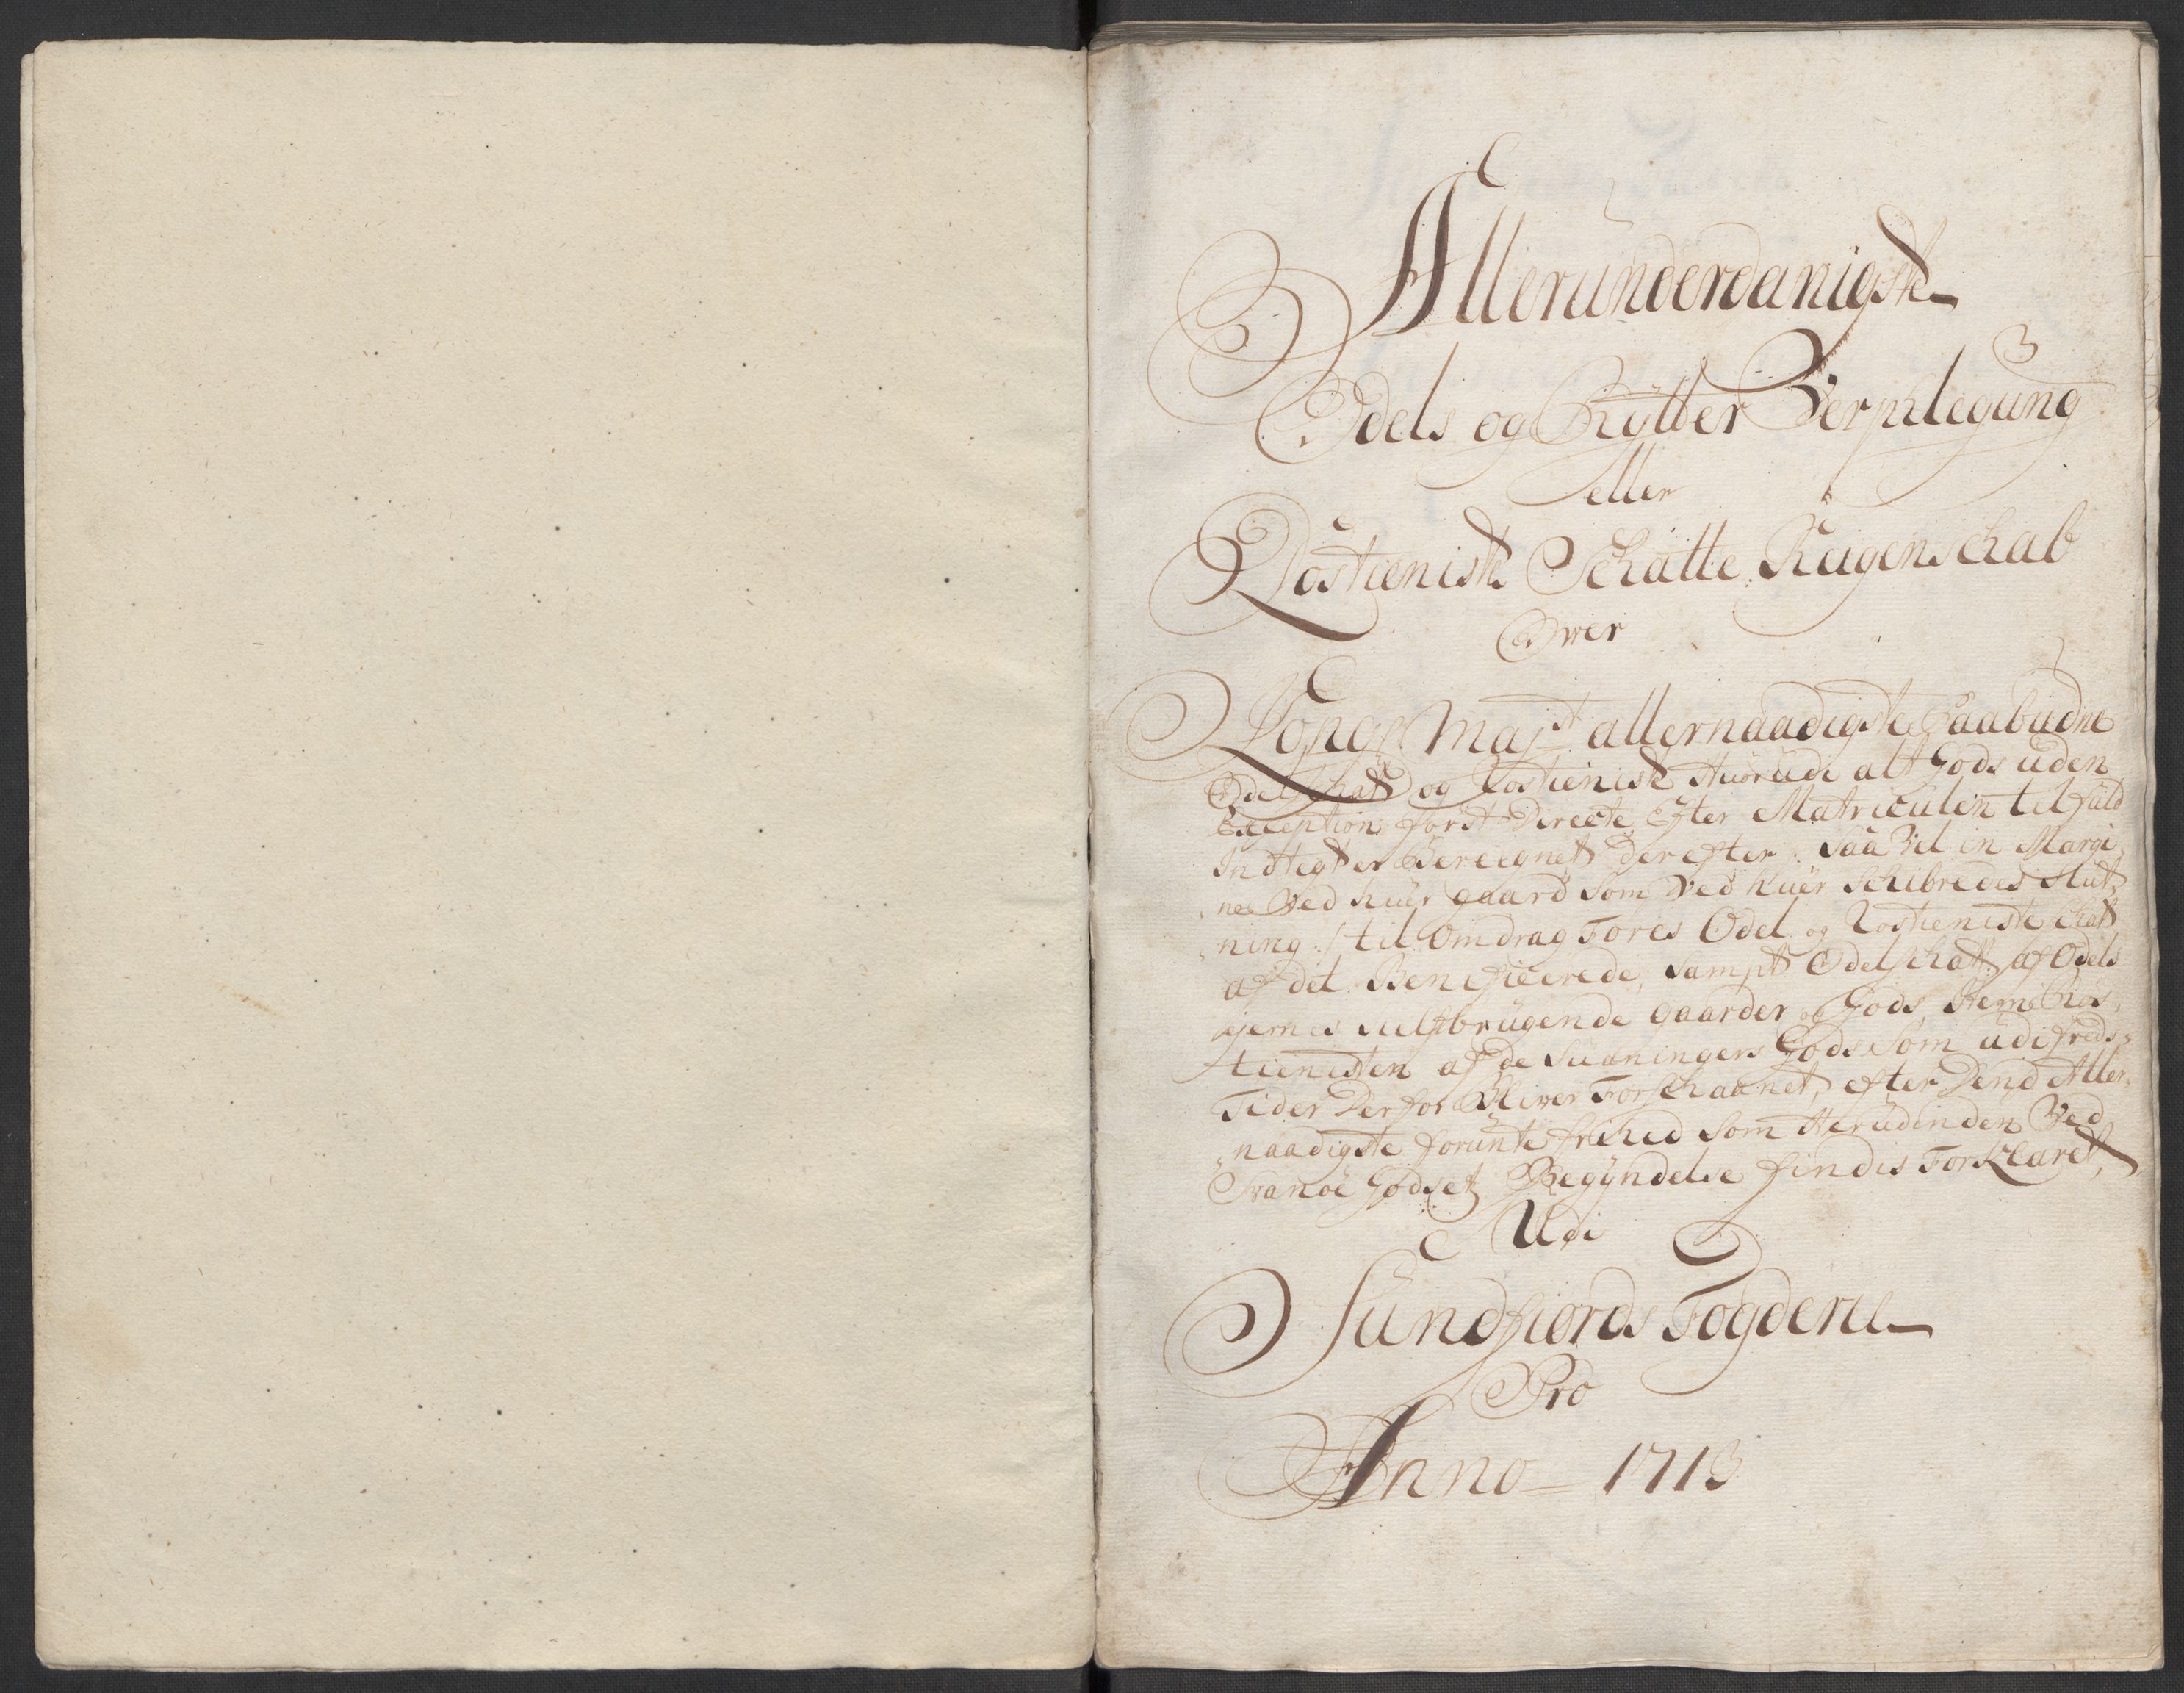 Allerunderdanigste
Odels og Rytter Verpflegung
eller
Rostieniste Schatte Reigenschab
Over
Konge Majst allernaadigste Paabudne
Odelschatt og Rostieniste Huorudi alt Gods uden
Exception først Directe Efter Matriculen til fuld
Indtegt er Bereignet Der efter : Saa Vel in Margi,
ne Ved huer gaard Som Ved huer Schibredes Slut,
ning :/ til Omdrag Føres Odel og Rostieniste Schatt
af det Beneficerede, sampt Odelschatt af Odels
ejernes selfbrugende gaarder og Gods, Item Ros,
tienisten af de Suaningers Gods Som udi freds,
Tider Derfor Bliver Forschaanet, efter Dend Aller,
naadigste forunte frihed Som Herudinden Ved
Svanøe Godset Begyndelse findis Forklaret,
Udi
Sundfiords Fogderie
Pro
Anno 1713